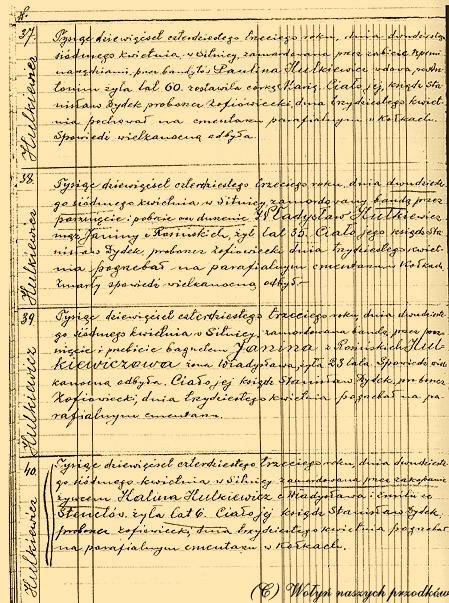 37.
Hulkiewicz
Tysiąc dziewięćset czterdziestego trzeciego roku, dnia dwudziestego
siódmego kwietnia w Sitnicy, zamordowana przez zabicie tępemi
narzędziami, przez bandytów Paulina Hulkiewicz wdowa po An-
tonim żyła lat 60. zostawiła córkę Marię. Ciało jej ksiądz Sta-
nisław Dydek proboszcz zofiowiecki, dnia trzydziestego kwiet-
nia pochował na cmentarzu parafialnym w Kołkach.
Spowiedź wielkanocną odbyła.
38.
Hulkiewicz
Tysiąc dziewięćset czterdziestego trzeciego roku, dnia dwudzieste-
go siódmego kwietnia w Sitnicy, zamordowany bandą przez
pchnięcie i pobicie oraz duszenie Władysław Hulkiewicz
mąż Janiny z Romińskich, żył lat 35. Ciało jego ksiądz Sta-
nisław Dydek, proboszcz zofiowiecki dnia trzydziestego kwiet-
nia pogrzebał na parafialnym cmentarzu Kołkach.
Zmarły spowiedź wielkanocną odbył.
39
Hulkiewicz
Tysiąc dziewięćset czterdziestego trzeciego roku, dnia dwudzieste-
go siódmego kwietnia w Sitnicy, zamordowana bandą przez pch-
nięcie i przebicie bagnetem Janina z Romińskich Hul-
kiewiczowa żona Władysława, żyła 23 lata. Spowiedź wiel-
kanocną odbyła. Ciało jej ksiądz Stanisław Dydek, proboszcz
Zofiowiecki, dnia trzydziestego kwietnia pogrzebał na pa-
rafialnym cmentarzu.
40.
Hulkiewicz
Tysiąc dziewięćset czterdziestego trzeciego roku, dnia dwudzieste-
go siódmego kwietnia w Sitnicy zamordowana przez zakopanie
żywcem Halina Hulkiewicz c. Władysława i Emilii ze
żyła lat 6. Ciało jej ksiądz Stanisław Dydek,
proboszcz zofiowiecki, dnia trzydziestego kwietnia pogrzebał
na parafialnym cmentarzu w Kołkach.
(C) Wołyń naszych przodków